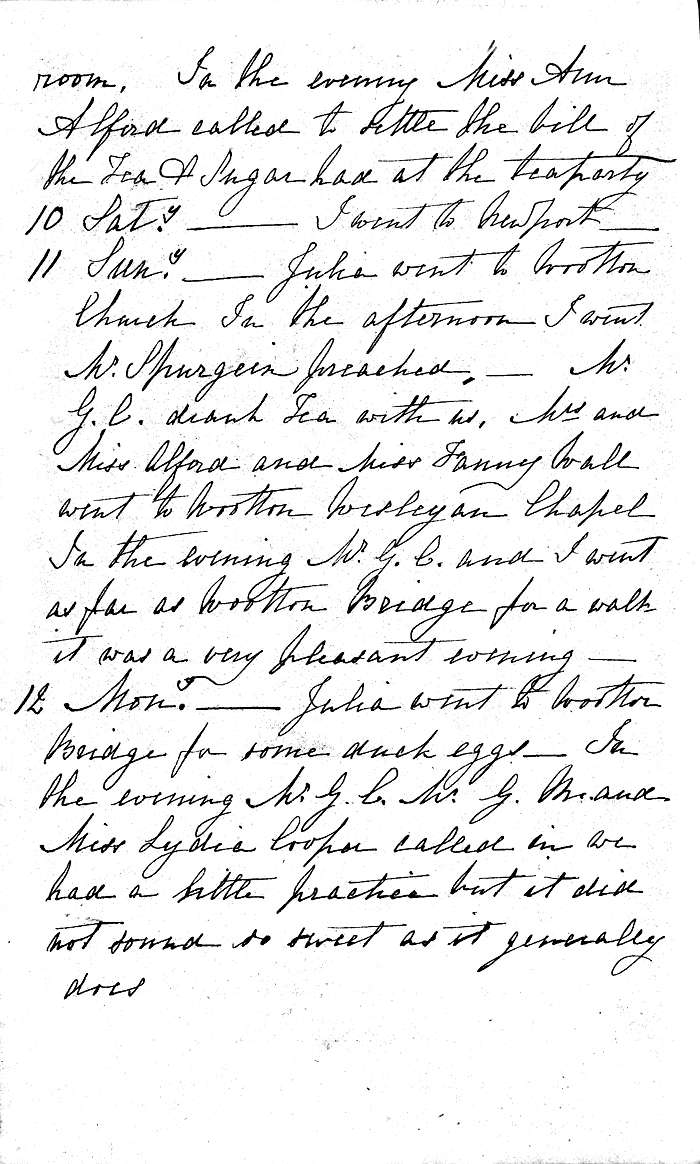 room. In the evening Miss Ann
Alford called to settle the bill of
the Tea & Sugar had at the teaparty
10 Sat.y —— I went to Newport —
11 Sun.y —— Julia went to Wootton
Church In the afternoon I went
Mr. Spurgein preached, — Mr.
G. C. drank Tea with us, Mrs and
Miss Alford and Miss Fanny Wall
went to Wootton Wesleyan Chapel
In the evening Mr. G. C. and I went
as far as Wootton Bridge for a walk
it was a very pleasant evening —
12 Mon.y —— Julia went to Wootton
Bridge for some duck eggs — In
the evening Mr. G. C. Mr. G. M. and
Miss Lydia Cooper called in we
had a little practice but it did
not sound so sweet as it generally
does